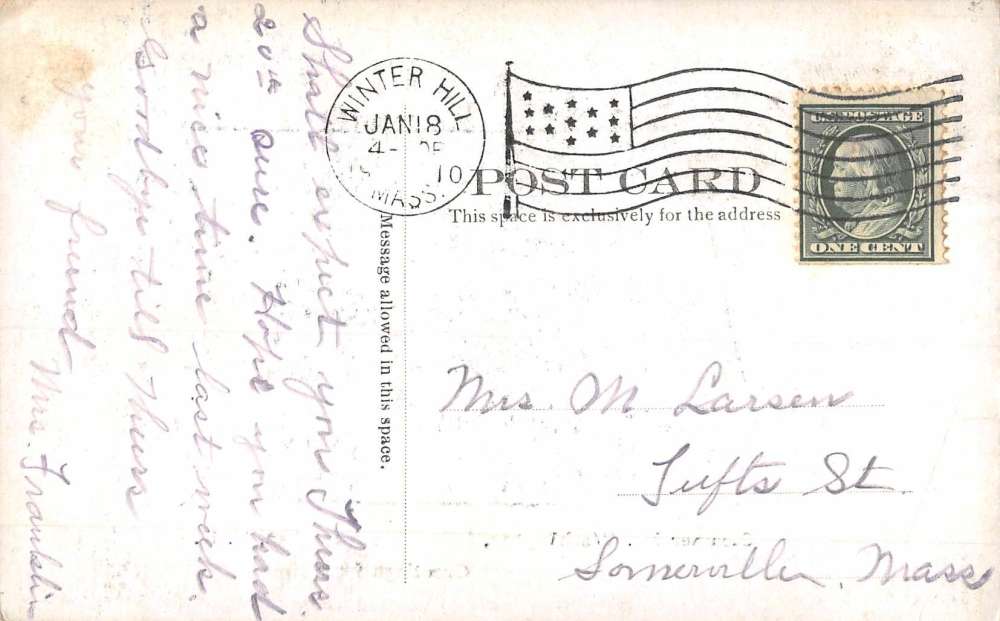 Shall expect you Thurs.
20th sure. Hope you had
a nice time last week.
Goodbye till Thurs
your friend
Mrs. Franklin
WINTER HILL
JAN 18
4-
10
MASS.
U.S. POSTAGE
ONE CENT
POST CARD
This space is exclusively for the address
Message allowed in this space.
Mrs. M Larsen
Tufts St.
Somerville, Mass